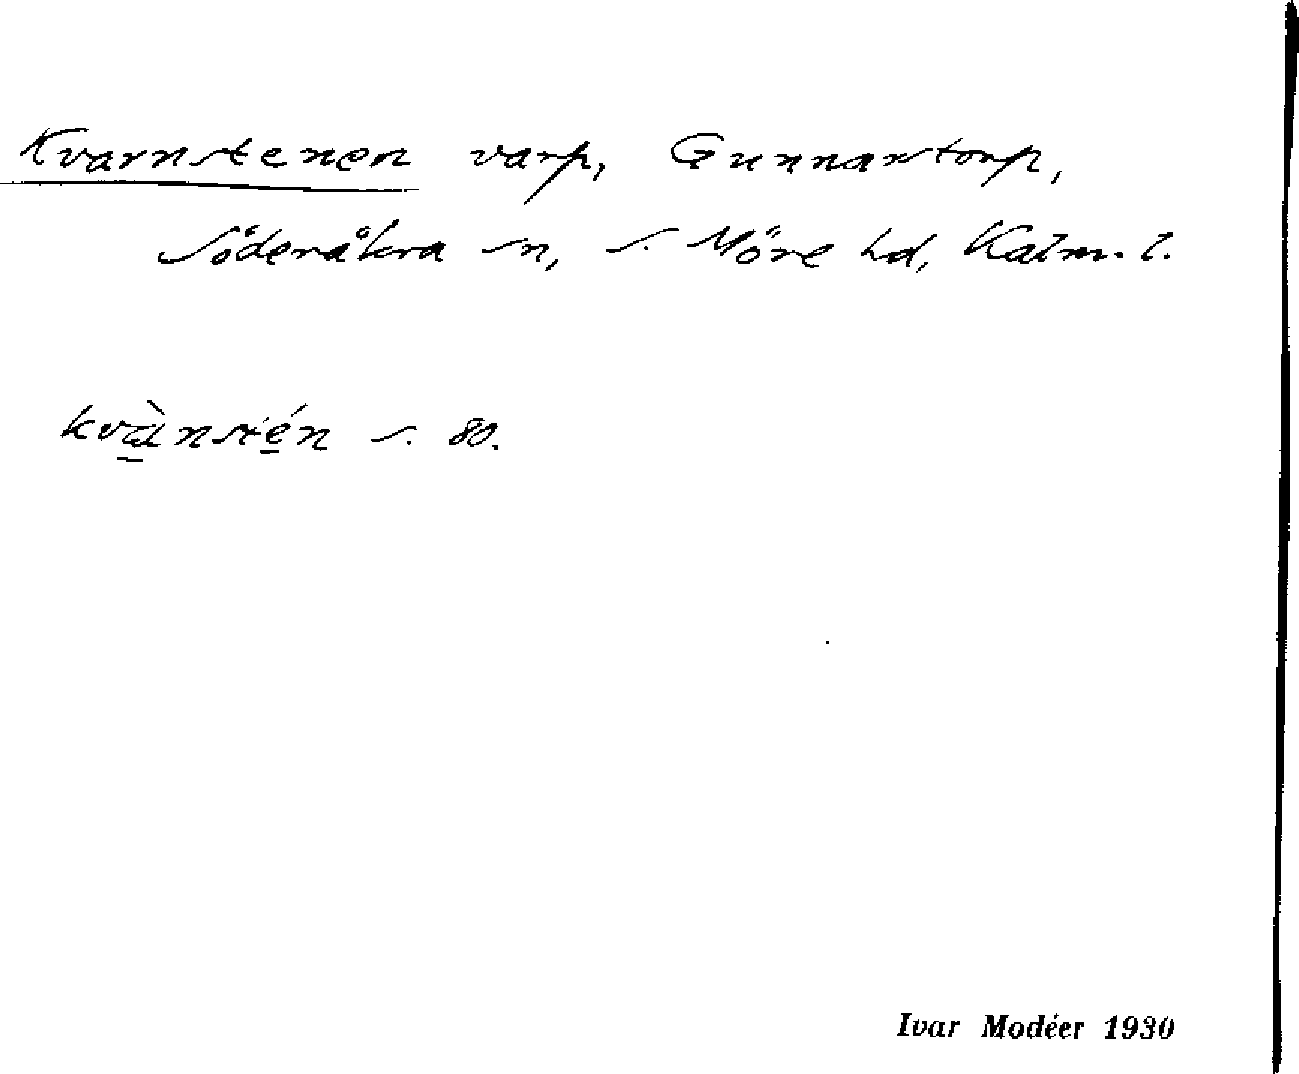 Kvarnstenen varp, Gunnarstorp,
Söderåkra sn, S. Möre hd, Kalm. l.
kvànstén s. 80.
Ivar Modéer 1930